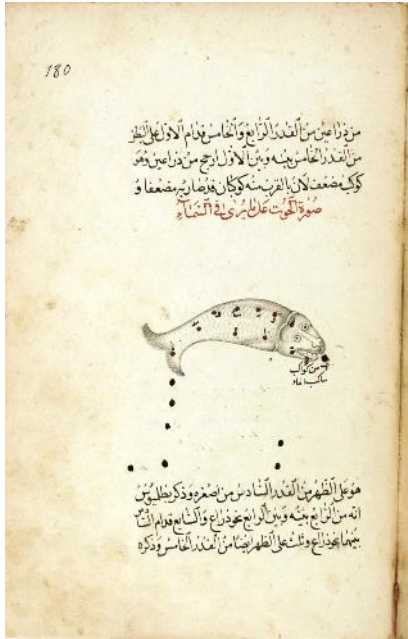 180
من ذراعين من القدر الرابع والخامس قدام الاول على البطن
من القدر الخامس بينه وبين الاول ارجح من ذراعين وهو
كوكب مضعف لان بالقرب منه كوكبان قد صار به مضعفا و
صورة الحوت على ما يرى في السماء
من كواكب
ساكب الماء
هو على الظهر من القدر السادس من اصغره وذكر بطلميوس
انه من الرابع بينه وبين الرابع نحو ذراع والسابع قدام الثامن
بينهما نحو ذراع وثلث على الظهر ايضا من القدر الخامس وذكره